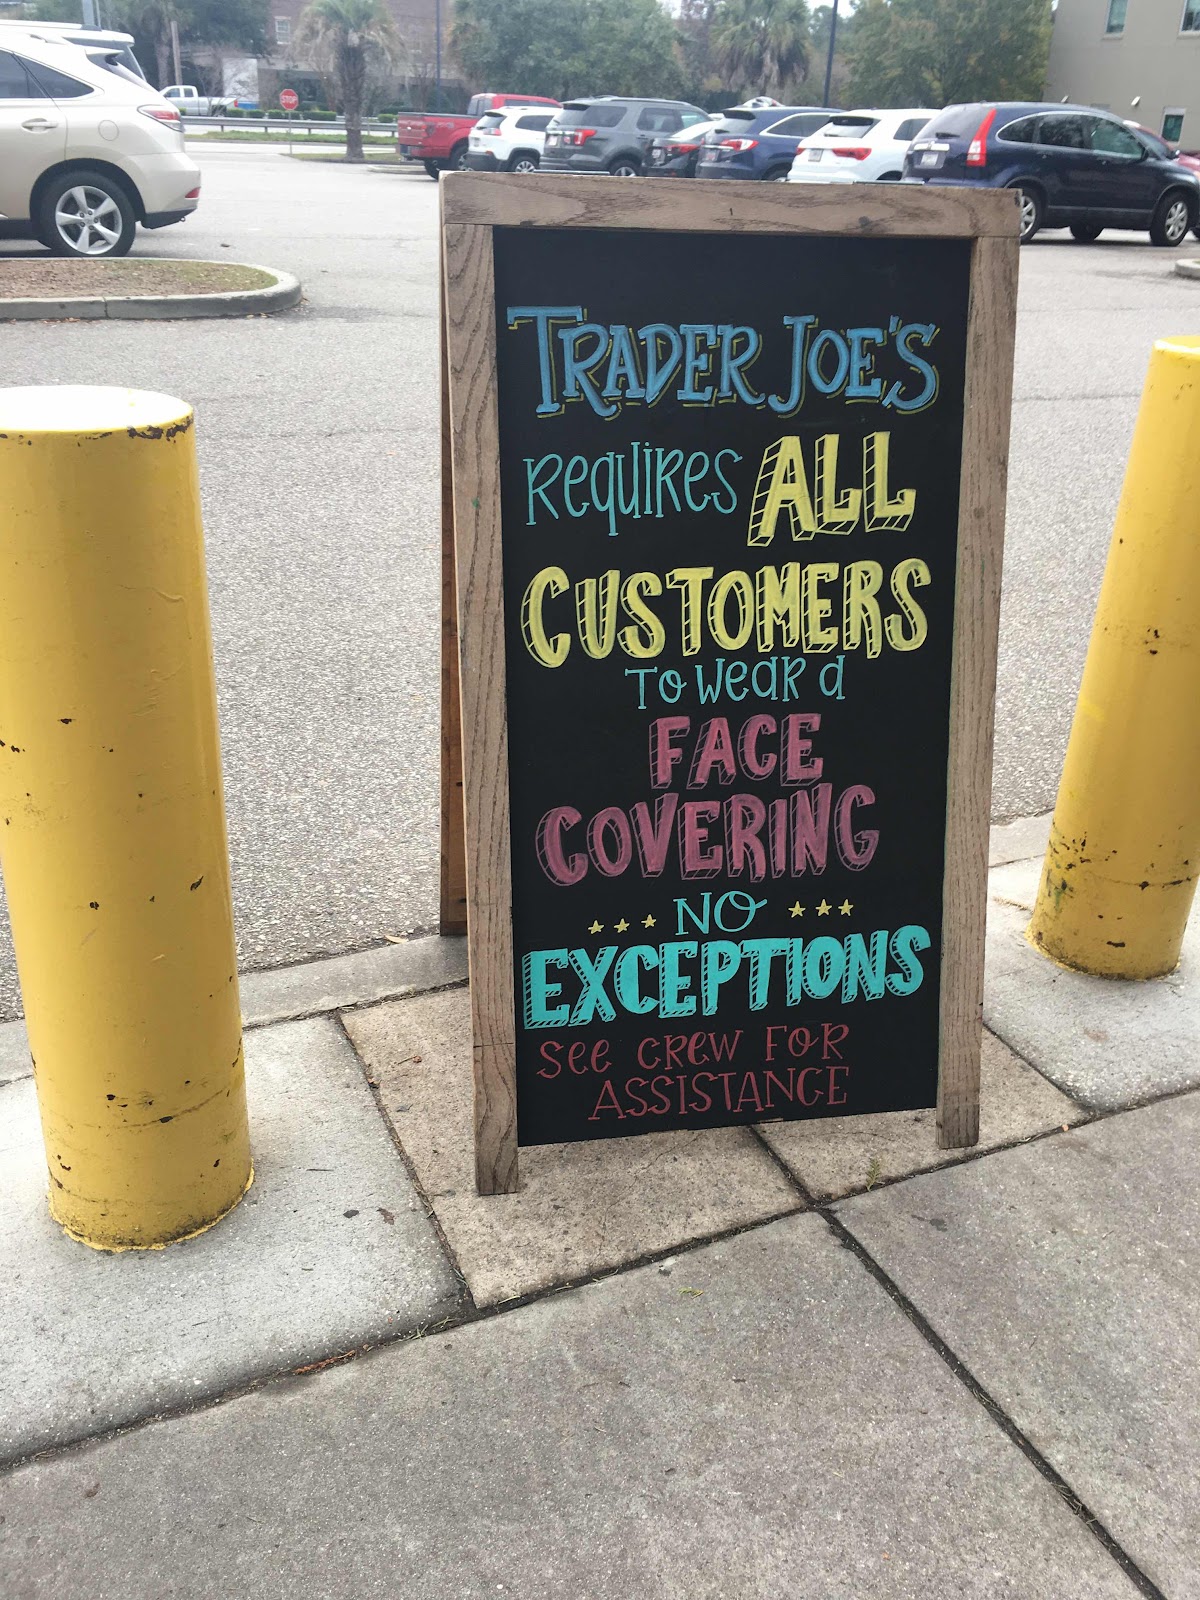 STOP
TRADER JOE'S
requires ALL
CUSTOMERS
To wear a
FACE
COVERING
NO
EXCEPTIONS
see crew for
ASSISTANCE